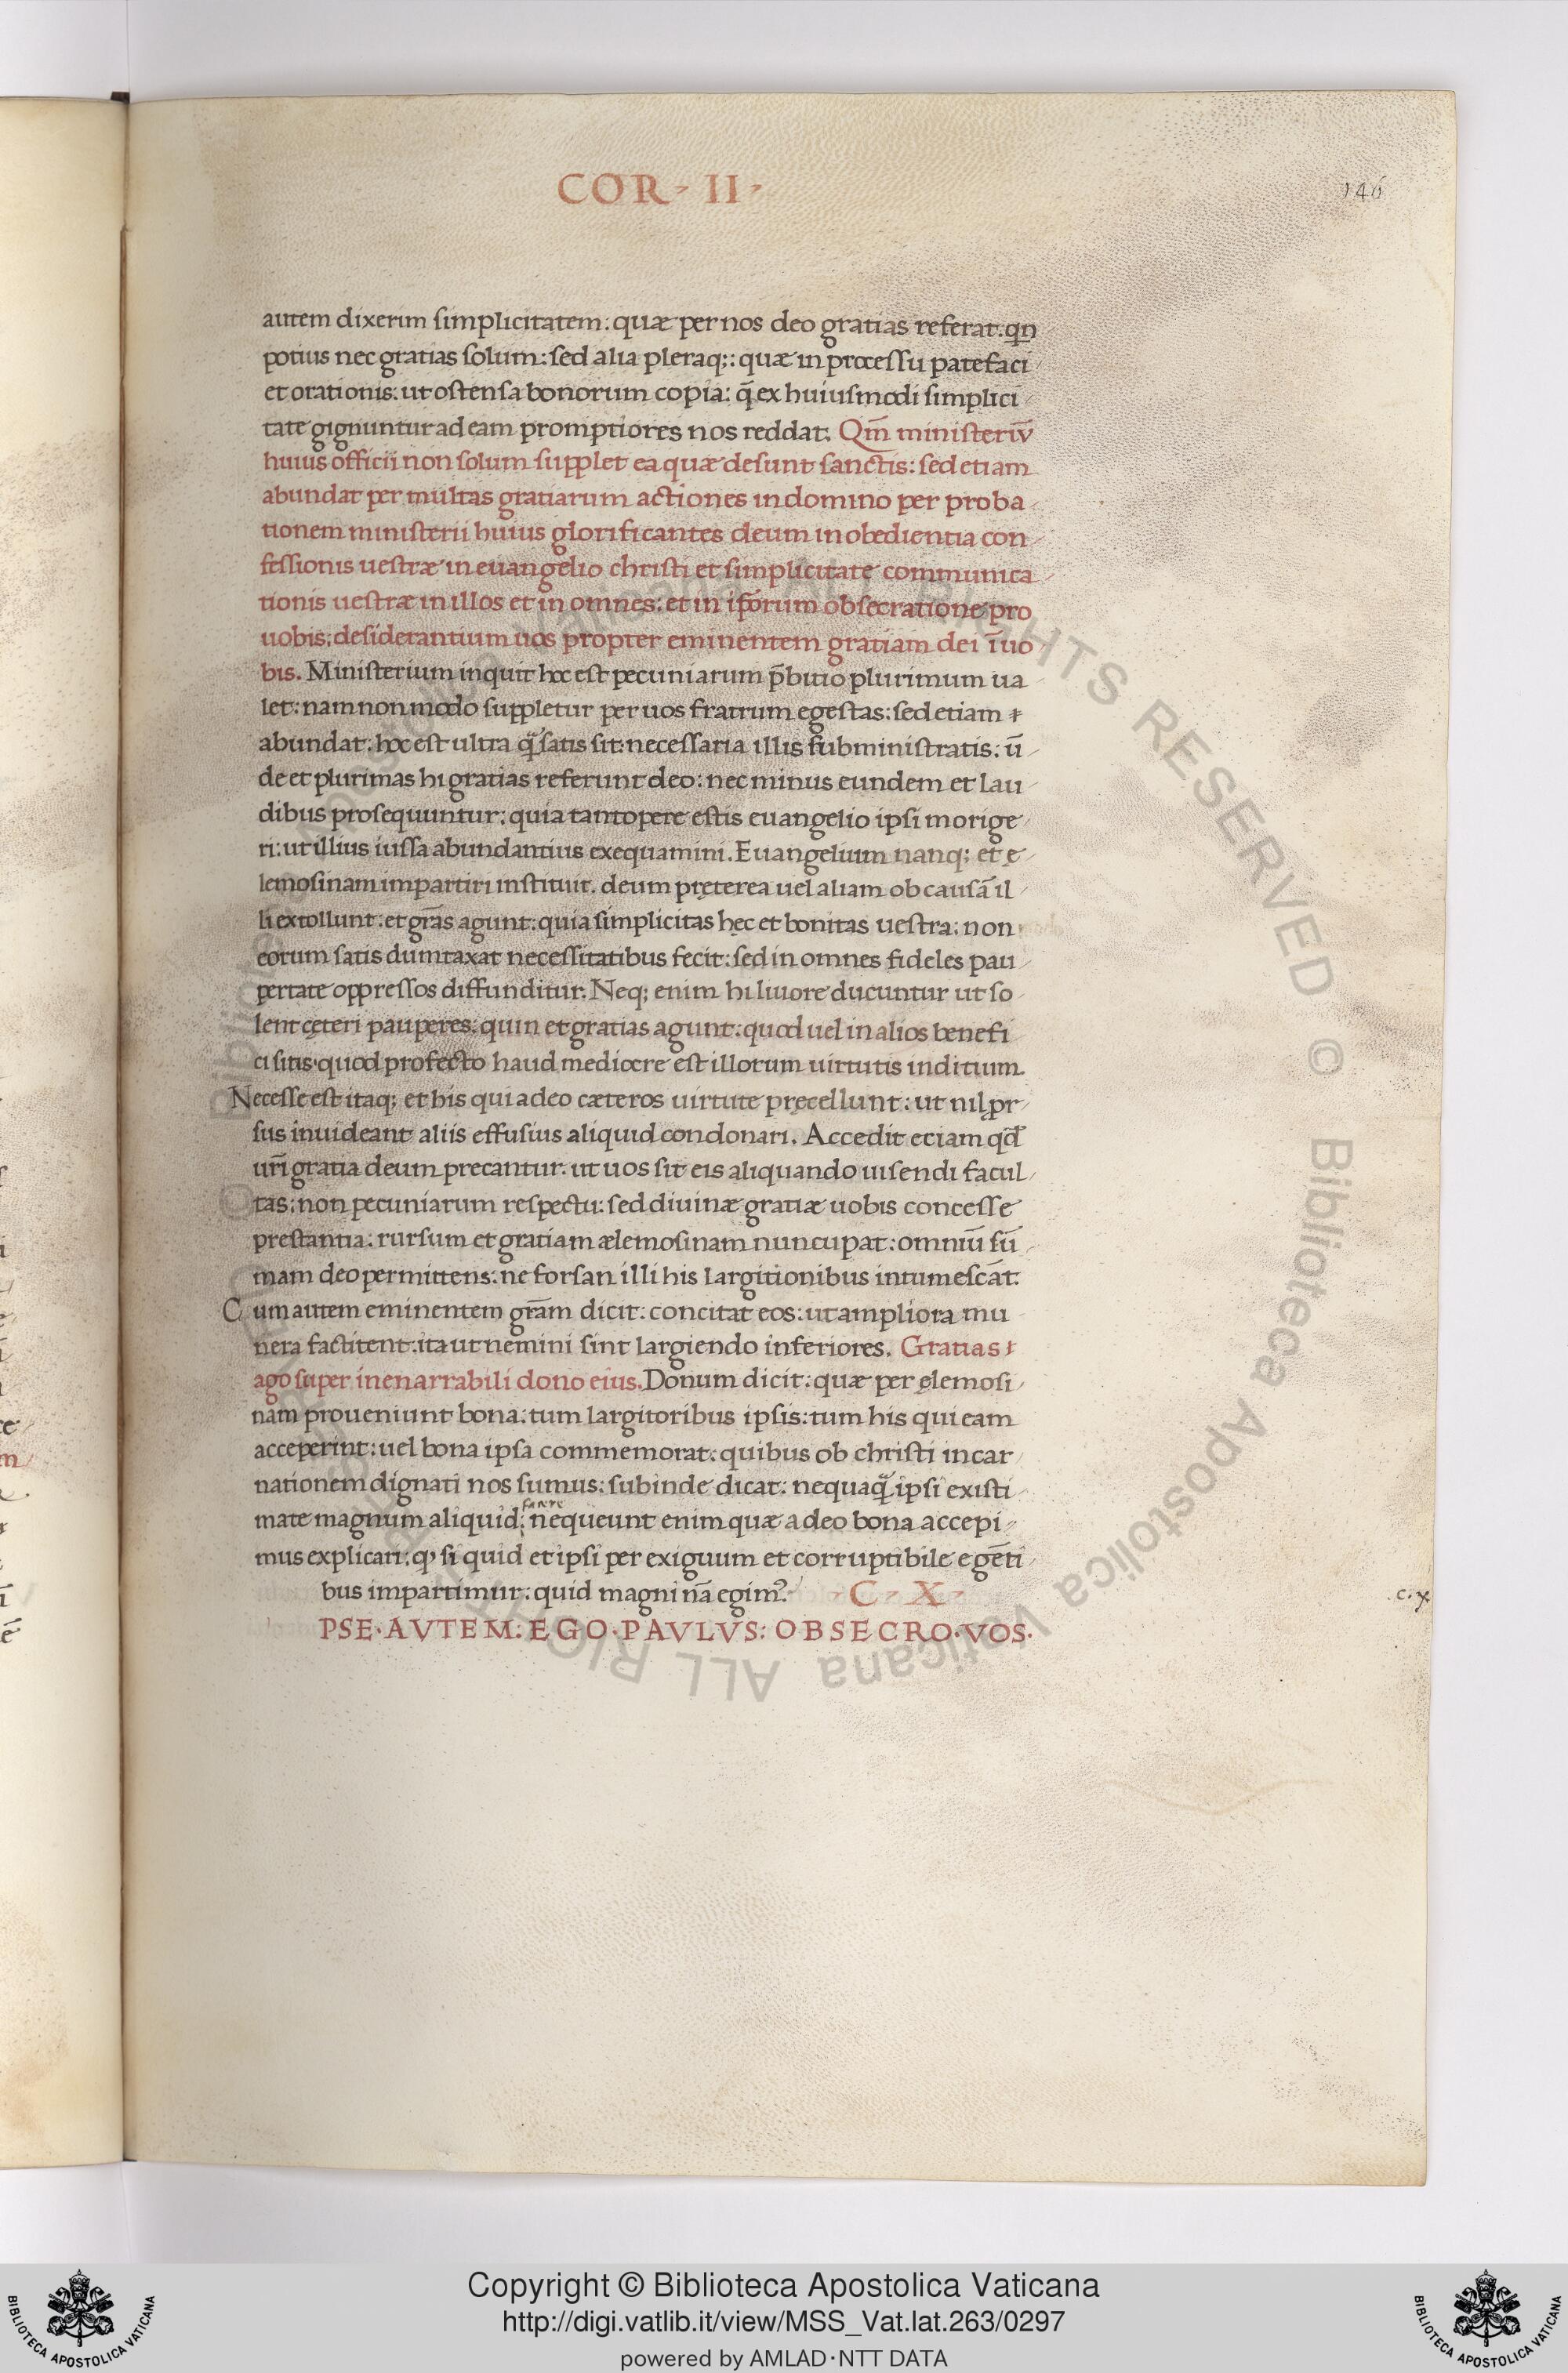 COR · II ·
146
autem dixerim simplicitatem: quæ per nos deo gratias referat. qn̄
potius nec gratias solum: sed alia pleraq;: quæ in processu patefaci
et orationis: ut ostensa bonorum copia: q̄ ex huiusmodi simplici
tate gignuntur ad eam promptiores nos reddat. Qm̄ ministeriū
huius officii non solum supplet ea quæ desunt sanctis: sed etiam
abundat per multas gratiarum actiones in domino per proba
tionem ministerii huius glorificantes deum in obedientia con
fessionis uestræ in euangelio christi et simplicitate communica
tionis uestræ in illos et in omnes: et in ip̄orum obsecratione pro
uobis: desiderantium uos propter eminentem gratiam dei ī uo
bis. Ministerium inquit hoc est pecuniarum p̄bitio plurimum ua
let: nam non modo suppletur per uos fratrum egestas: sed etiam
abundat: hoc est ultra q̄ satis sit: necessaria illis subministratis: ū
de et plurimas hi gratias referunt deo: nec minus eundem et lau
dibus prosequuntur: quia tantopere estis euangelio ipsi morige
ri: ut illius iussa abundantius exequamini. Euangelium nanq; et ę
lemosinam impartiri instituit. deum pręterea uel aliam ob causā il
li extollunt: et grās agunt: quia simplicitas hęc et bonitas uestra: non
eorum satis dumtaxat necessitatibus fecit: sed in omnes fideles pau
pertate oppressos diffunditur. Neq; enim hi liuore ducuntur ut so
lent cęteri pauperes: quin et gratias agunt: quod uel in alios benefi
ci sitis· quod profecto haud mediocre est illorum uirtutis inditium
Necesse est itaq; et his qui adeo cæteros uirtute pręcellunt: ut nil pr
sus inuideant aliis effusius aliquid condonari. Accedit etiam qd̄
ur̄i gratia deum precantur. ut uos sit eis aliquando uisendi facul
tas: non pecuniarum respectu: sed diuinæ gratiæ uobis concesse
prestantia: rursum et gratiam ælemosinam nuncupat: omniū sū
mam deo permittens: ne forsan illi his largitionibus intumescāt.
Cum autem eminentem grām dicit: concitat eos: ut ampliora mu
nera factitent: ita ut nemini sint largiendo inferiores. Gratias
ago super inenarrabili dono eius. Donum dicit: quæ per ęlemosi
nam proueniunt bona: tum largitoribus ipsis: tum his qui eam
acceperint: uel bona ipsa commemorat: quibus ob christi incar
nationem dignati nos sumus: subinde dicat: nequaq̄ ipsi existi
mate magnum aliquid: nequeunt enim quæ adeo bona accepi
mus explicari: q si quid et ipsi per exiguum et corruptibile egēti
bus impartimur: quid magni nā egim9? C · X ·
c. x.
PSE·AVTEM: EGO·PAVLVS: OBSECRO·VOS·
Copyright © Biblioteca Apostolica Vaticana
http://digi.vatlib.it/view/MSS_Vat.lat.263/0297
powered by AMLAD·NTT DATA
BIBLIOTECA APOSTOLICA VATICANA
BIBLIOTECA APOSTOLICA VATICANA